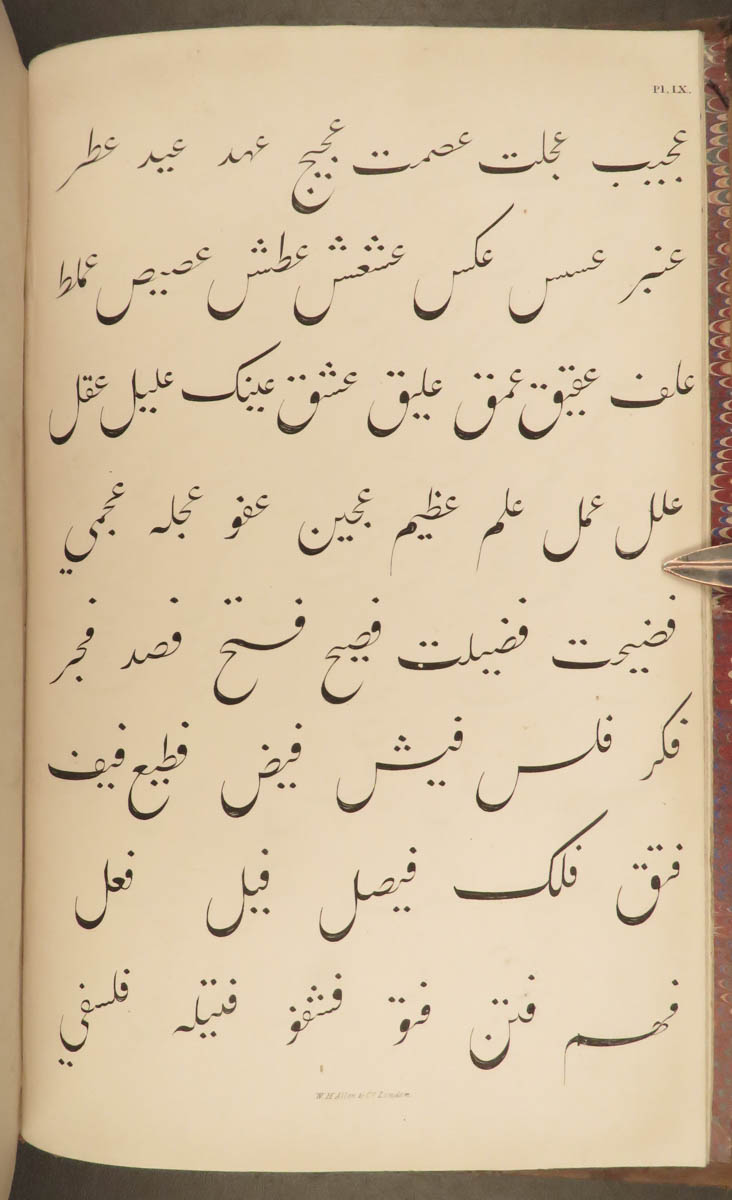 Pl. LX.
عجیب عجلت عصمت عجیج عهد عید عطر
عنبر عسس عکس عشعش عطش عصیص عملط
علف عقیق عمق علیق عشق عینک علیل عقل
علل عمل علم عظیم عجین عفو عجله عجمي
فضیحت فضیلت فصیح فتح فصد فجر
فکر فلس فیش فیض قطیع فیف
فتق فلک فیصل فیل فعل
فهم فتن فتیله فلسفي
W. H. Allen & Co. London.